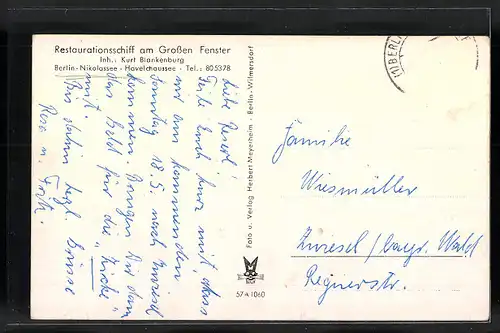 Restaurationsschiff am Großen Fenster
Inh.: Kurt Blankenburg
Berlin-Nikolassee - Havelchaussee - Tel.: 805378
Liebe Reserl!
Teile Euch kurz mit, dass
wir am kommenden
Sonntag 18.5. nach Zwiesel
kommen. Bringen Dir dann
das Geld für die "Kirche"
mit.
Bis dahin herzl. Grüsse
Foto u. Verlag Herbert Meyerheim, Berlin-Wilmersdorf
57 A 1060
(1) BERLIN
Familie
Wiesmüller
Zwiesel / bayr. Wald
Regenerstr.